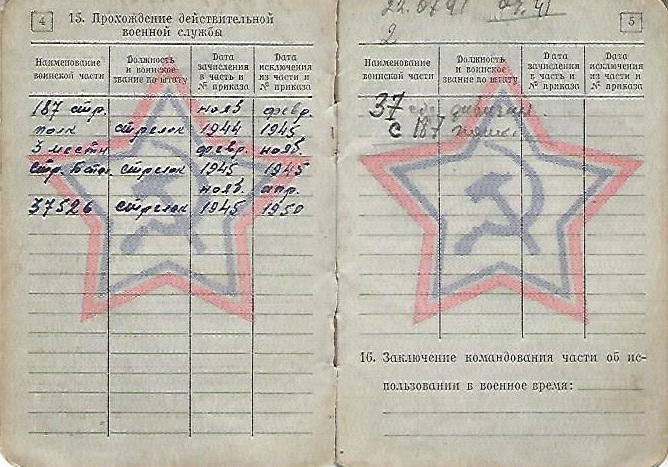 4
15. Прохождение действительной
военной службы
Наименование
воинской части
Должность
и воинское
звание по штату
Дата
зачисления
в часть и
№ приказа
Дата
исключения
из части и
№ приказа
187 стр. нояб февр.
полк стрелок 1944 1945
3 местн февр. нояб.
стр. бат. стрелок 1945 1945
нояб. апр.
37526 стрелок 1945 1950
5
41
2
Наименование
воинской части
Должность
и воинское
звание по штату
Дата
зачисления
в часть и
№ приказа
Дата
исключения
из части и
№ приказа
37
с 187
16. Заключение командования части об ис-
пользовании в военное время: